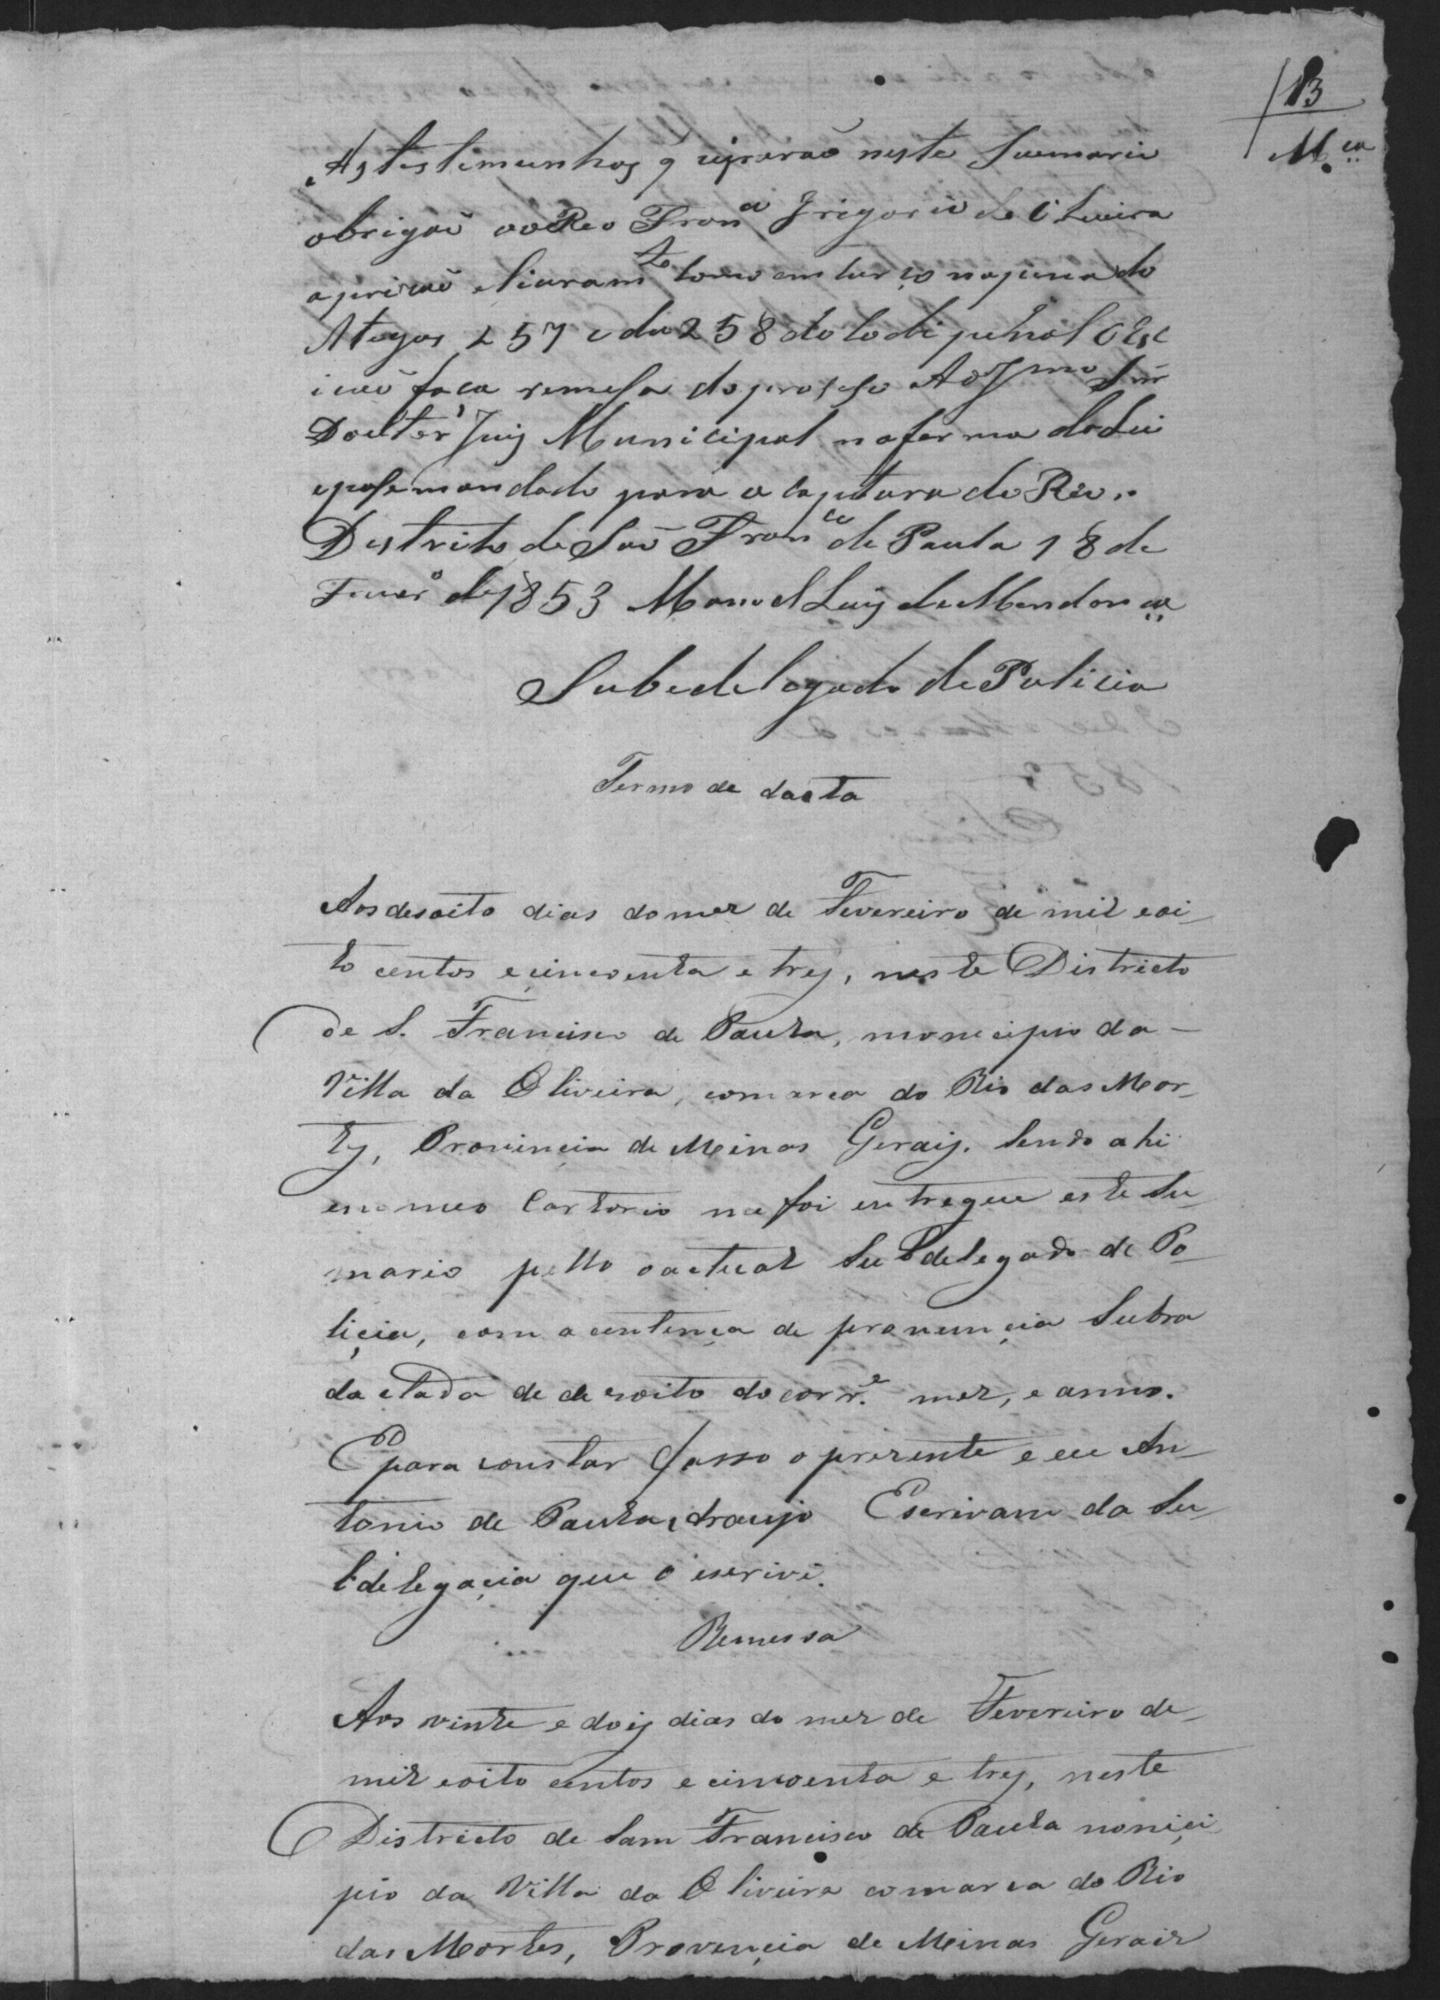 13
M.ca
As testimunhas q juraraõ neste Suemario
obrigaõ ao Reo Fran.co Grigorio de Oliveira
a prizaõ e livram.to como incurço na pena do
Artigos 257 e do 258 do Codi penal O Esc
ivaõ faca remesa do proseso Ao Jmo Snr
Doutor Juiz Municipal na forma da Lei
e pase mandado para a captura do Reo.
Destrito de Saõ Fran.co de Paula 18 de
Fever.o de 1853 Manoel Luiz de Mendonca
Subedelegado de Policia
Termo de dacta
Aos desoito dias do mez de Fevereiro de mil e oi-
to centos e cincoenta e trez, neste Districto
de S. Francisco de Paula, monicipio da -
Villa da Oliveira, comarca do Rio das Mor-
tes, Provincia de Meinas Geraiz. Sendo ahi
em meo Cartorio me foi entregue este Su-
mario pello o actual Subdelegado de Po-
liçia, com a centença de pronunçia Subra
dactada de desoito do corr.e mez, e anno.
E para constar fasso o prezente e eu An-
tonio de Paula Araujo Escrivam da Su-
bdelegaçia que o escrivi.
Remessa
Aos vinte e doiz dias do mez de Fevereiro de
mil e oito centos e cincoenta e trez, neste
Districto de Sam Francisco de Paula moniçi
pio da Villa da Oliveira comarca do Rio
das Mortes, Provençia de Meinas Geraiz